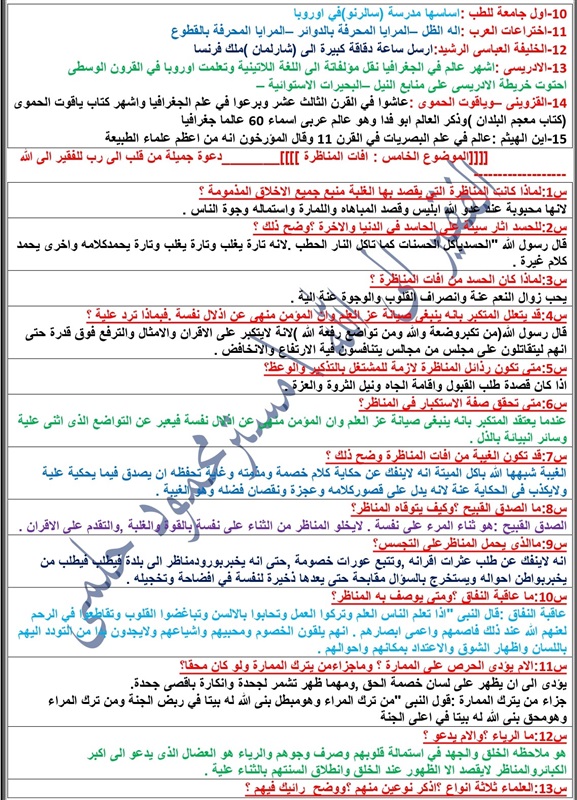 10-اول جامعة للطب : اساسها مدرسة (سالرنو)في اوروبا
11-اختراعات العرب : اله الظل –المرايا المحرقة بالدوائر –المرايا المحرقة بالقطوع
12-الخليفة العباسى الرشيد:ارسل ساعة دقاقة كبيرة الى (شارلمان )ملك فرنسا
13-الادريسى : اشهر عالم في الجغرافيا نقل مؤلفاتة الى اللغة اللاتينية وتعلمت اوروبا في القرون الوسطى
احتوت خريطة الادريسى على منابع النيل –البحيرات الاستوائية –
14-القزوينى –وياقوت الحموى : عاشوا في القرن الثالث عشر وبرعوا في علم الجغرافيا واشهر كتاب ياقوت الحموى
(كتاب معجم البلدان )وذكر العالم ابو فدا وهو عالم عربى اسماء 60 عالما جغرافيا
15-ابن الهيثم : عالم في علم البصريات في القرن 11 وقال المؤرخون انه من اعظم علماء الطبيعة
[[[[الموضوع الخامس : افات المناظرة ]]]]________دعوة جميلة من قلب الى رب للفقير الى الله
-----------------
س1:لماذا كانت المناظرة التي يقصد بها الغلبة منبع جميع الاخلاق المذمومة ؟
لانها محبوبة عند عدو الله ابليس وقصد المباهاه واللمارة واستماله وجوة الناس .
س2:للحسد اثار سيئة على الحاسد في الدنيا والاخرة ؟وضح ذلك ؟
قال رسول الله "الحسدياكل الحسنات كما تاكل النار الحطب .لانه تارة يغلب وتارة يغلب وتارة يحمدكلامه واخرى يحمد
كلام غيرة .
س3:لماذا كان الحسد من افات المناظرة ؟
يحب زوال النعم عنة وانصراف القلوب والوجوة عنة الية .
س4:قد يتعلل المتكبر بانه ينبغى صيانة عز العلم وان المؤمن منهى عن اذلال نفسة .فبماذا ترد علية ؟
قال رسول الله(من تكبروضعة والله ومن تواضع رفعة الله )لانة لايتكبر على الاقران والامثال والترفع فوق قدرة حتى
انهم ليتقاتلون على مجلس من مجالس يتنافسون فية الارتفاع والانخفاض .
س5:متى تكون رذائل المناظرة لازمة للمشتغل بالتذكير والوعظ؟
اذا كان قصدة طلب القبول واقامة الجاه ونيل الثروة والعزة .
س6:متى تحقق صفة الاستكبار في المناظر؟
عندما يعتقد المتكبر بانه ينبغى صيانة عز العلم وان المؤمن منهى عن اذلال نفسة فيعبر عن التواضع الذى اثنى علية
وسائر انبيائة بالذل .
س7:قد تكون الغيبة من افات المناظرة وضح ذلك ؟
الغيبة شبهها الله باكل الميتة انه لاينفك عن حكاية كلام خصمة ومذمته وغاية تحفظه ان يصدق فيما يحكية علية
ولايكذب في الحكاية عنة لانه يدل على قصوركلامه وعجزة ونقصان فضله وهو الغيبة .
س8:ما الصدق القبيح ؟وكيف يتوفاه المناظر؟
الصدق القبيح :هو ثناء المرء على نفسة . لايخلو المناظر من الثناء على نفسة بالقوة والغلبة ,والتقدم على الاقران .
س9:مالذى يحمل المناظرعلى التجسس؟
انه لاينفك عن طلب عثرات اقرانه ,وتتبع عورات خصومة ,حتى انه يخبربورودمناظر الى بلدة فيطلب فيطلب من
يخبربواطن احواله ويستخرج بالسؤال مقابحة حتى يعدها ذخيرة لنفسة في افضاحة وتخجيله .
س10:ما عاقبة النفاق ؟ومتى يوصف به المناظر؟
عاقبة النفاق :قال النبى "اذا تعلم الناس العلم وتركوا العمل وتحابوا بالالسن وتباغضوا القلوب وتقاطعوا في الرحم
لعنهم الله عند ذلك فاصمهم واعمى ابصارهم . انهم يلقون الخصوم ومحبيهم واشياعهم ولايجدون بدا من التودد اليهم
باللسان واظهار الشوق والاعتداد بمكانهم واحوالهم .
س11:الام يؤدى الحرص على الممارة ؟ وماجزاءمن يترك الممارة ولو كان محقا؟
يؤدى الى ان يظهر على لسان خصمة الحق ,ومهما ظهر تشمر لجحدة وانكارة باقصى جحدة.
جزاء من يترك الممارة :قول النبى "من ترك المراء وهومبطل بنى الله له بيتا في ربض الجنة ومن ترك المراء
وهومحق بنى الله له بيتا في اعلى الجنة
س12:ما الرياء ؟والام يدعو ؟
هو ملاحظه الخلق والجهد في استمالة قلوبهم وصرف وجوهم والرياء هو العضال الذى يدعو الى اكبر
الكبائروالمناظر لايقصد الا الظهور عند الخلق وانطلاق السنتهم بالثناء علية .
س13:العلماء ثلاثة انواع ؟اذكر نوعين منهم ؟ووضح رائيك فيهم ؟
الفقير الى الله مستر محمود حلمى